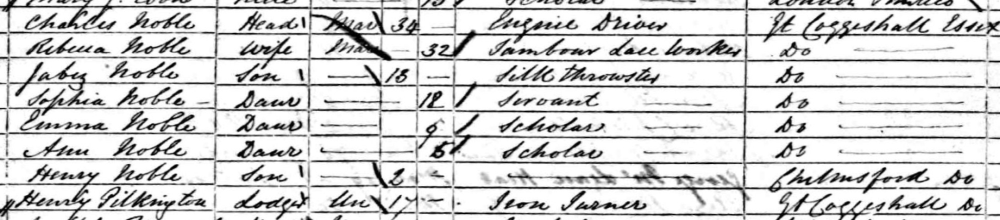 Charles Noble Head Mar 34 Engine Driver Gt Coggeshall Essex
Rebecca Noble Wife Mar 32 Tambour Lace Worker Do
Jabez Noble Son 13 Silk throwster Do
Sophia Noble Daur 12 Servant Do
Emma Noble Daur 9 Scholar Do
Ann Noble Daur 5 Scholar Do
Henry Noble Son 2 Chelmsford Do
Henry Pilkington Lodger Un 17 Iron Turner Gt Coggeshall Do